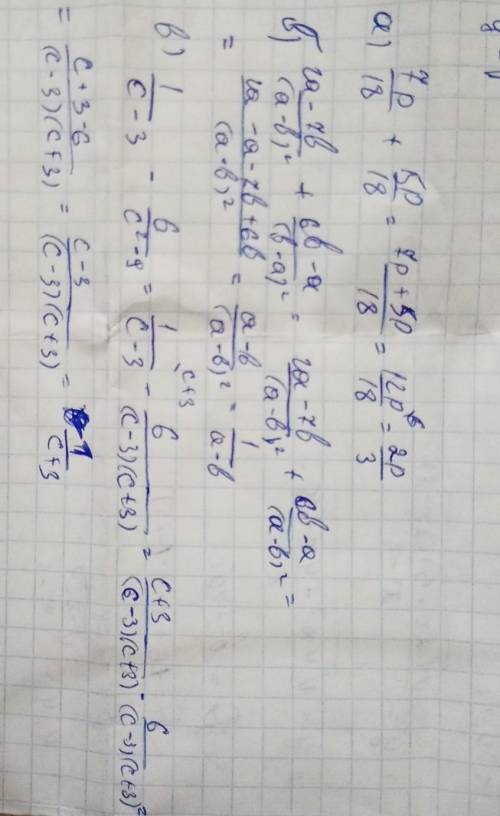 а) 7p/18 + 5p/18 = (7p+5p)/18 = 12p/18 = 2p/3
б) (2a-7b)/(a-b)² + (6b-a)/(b-a)² = (2a-7b)/(a-b)² + (6b-a)/(a-b)² =
= (2a-a-7b+6b)/(a-b)² = (a-b)/(a-b)² = 1/(a-b)
в) 1/(c-3) - 6/(c²-9) = 1/(c-3) \c+3 - 6/((c-3)(c+3)) = (c+3)/((c-3)(c+3)) - 6/((c-3)(c+3)) =
= (c+3-6)/((c-3)(c+3)) = (c-3)/((c-3)(c+3)) = 1/(c+3)